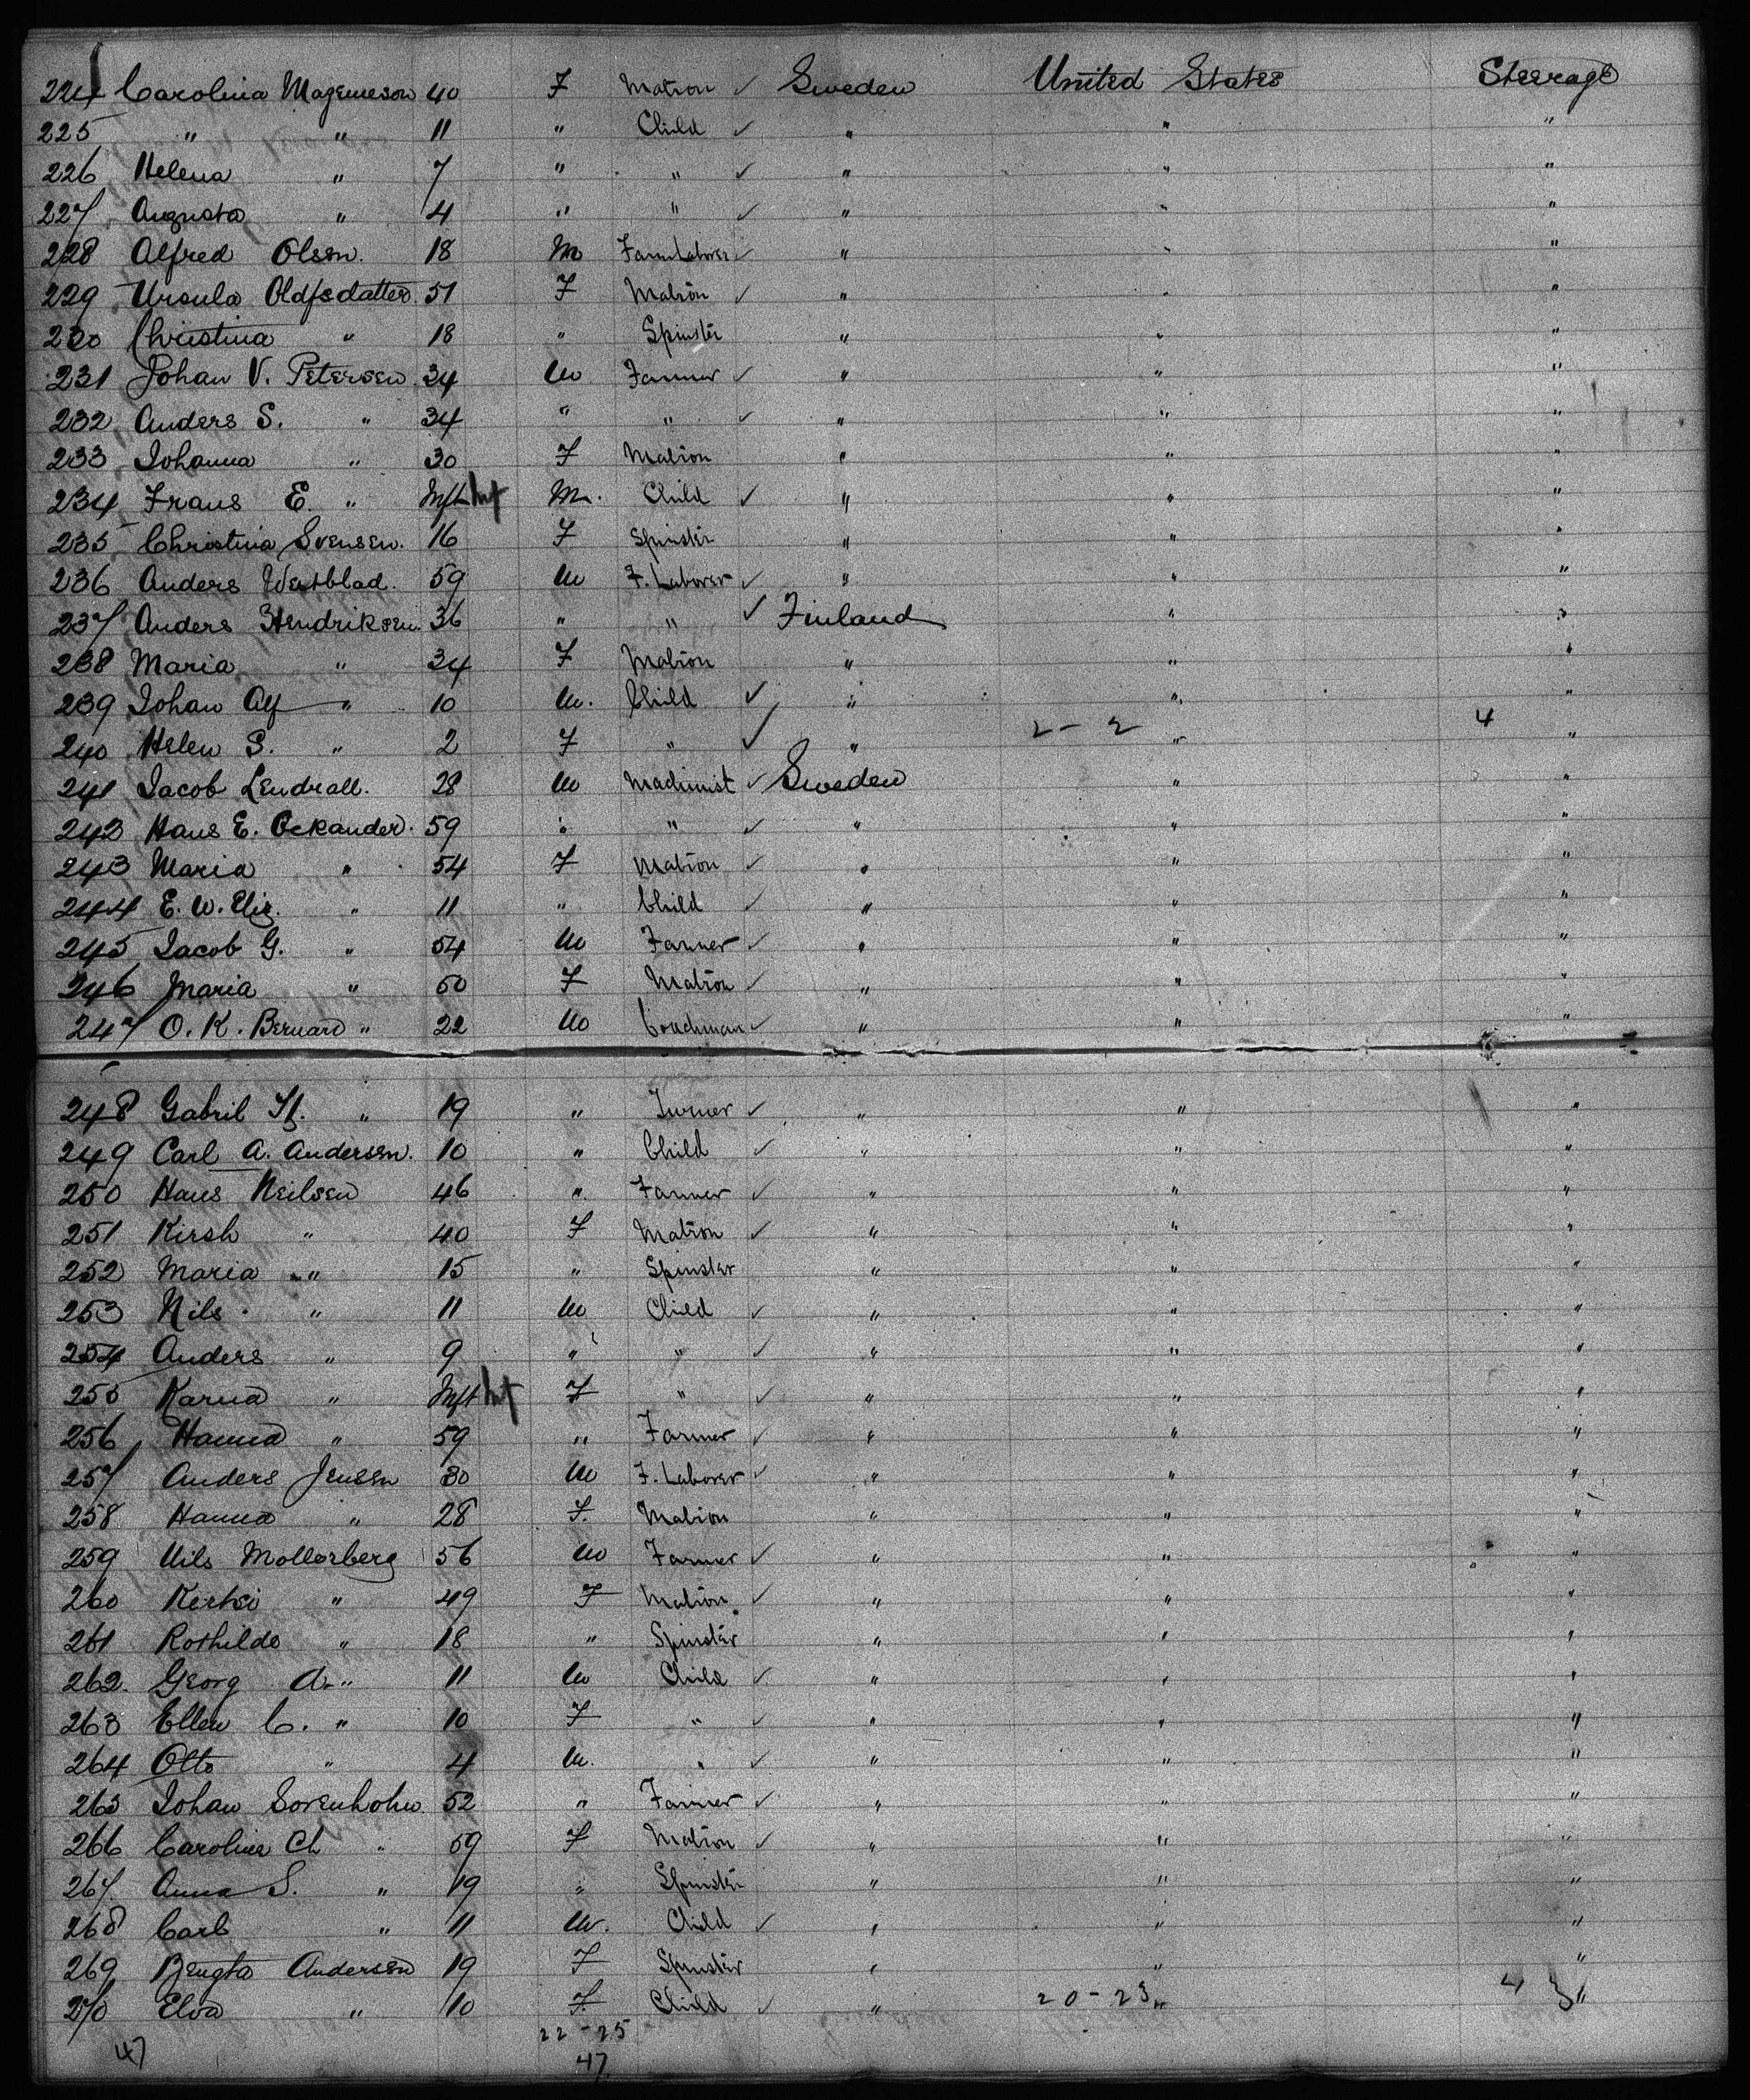 224 Carolina Magneneson 40 F Matron ✓ Sweden United States Steerage
225 " " 11 " Child ✓ " " "
226 Helena " 7 " " ✓ " " "
227 Augusta " 4 " " ✓ " " "
228 Alfred Olsen. 18 M Farm Laborer ✓ " " "
229 Ursula Oldfsdatter. 51 F Matron ✓ " " "
230 Christina " 18 " Spinster " " "
231 Johan V. Petersen 34 M Farmer ✓ " " "
232 Anders S. " 34 " " ✓ " " "
233 Johanna " 30 F Matron " " "
234 Frans E. " Inft Inf M. Child ✓ " " "
235 Christina Svensen. 16 F Spinster " " "
236 Anders Westblad. 59 M F. Laborer ✓ " " "
237 Anders Hendriksen. 36 " " ✓ Finland " "
238 Maria " 34 F Matron " " "
239 Johan Alf " 10 M. Child ✓ " " "
2 - 2 4
240 Helen S. " 2 F " ✓ " " "
241 Jacob Lendrall. 28 M Machinist ✓ Sweden " "
242 Hans E. Ockander. 59 " " ✓ " " "
243 Maria " 54 F Matron ✓ " " "
244 E. W. Eliz. " 11 " Child ✓ " " "
245 Jacob G. " 54 M Farmer ✓ " " "
246 Maria " 50 F Matron ✓ " " "
247 O. K. Bernard " 22 M Coachman ✓ " " "
248 Gabril " 19 " Turner ✓ " " "
249 Carl A. Andersen. 10 " Child ✓ " " "
250 Hans Neilsen 46 " Farmer ✓ " " "
251 Kirsh " 40 F Matron ✓ " " "
252 Maria " 15 " Spinster " " "
253 Nils " 11 M Child ✓ " " "
254 Anders " 9 " " ✓ " " "
255 Karna " Inft Inf F " ✓ " " "
256 Hanna " 59 " Farmer ✓ " " "
257 Anders Jensen 30 M F. Laborer ✓ " " "
258 Hanna " 28 F. Matron " " "
259 Nils Mollerberg 56 M Farmer ✓ " " "
260 Kersti " 49 F Matron ✓ " " "
261 Rothilde " 18 " Spinster " " "
262. Georg A. " 11 M Child ✓ " " "
263 Ellen C. " 10 F " ✓ " " "
264 Otto " 4 M. " ✓ " " "
265 Johan Sorenholm. 52 " Farmer ✓ " " "
266 Caroline Ch " 59 F Matron ✓ " " "
267. Anna S. " 19 " Spinster " " "
268 Carl " 11 M. Child ✓ " " "
269 Bengta Andersen 19 F Spinster " " "
270 Elva " 10 F. Child ✓ " 20 - 23 " 43 "
22 - 25
47 47